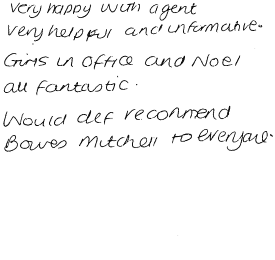 very happy with agent
very helpful and informative.
Girls in office and Noel
all fantastic.
Would def recommend
Bowes Mitchell to everyone.